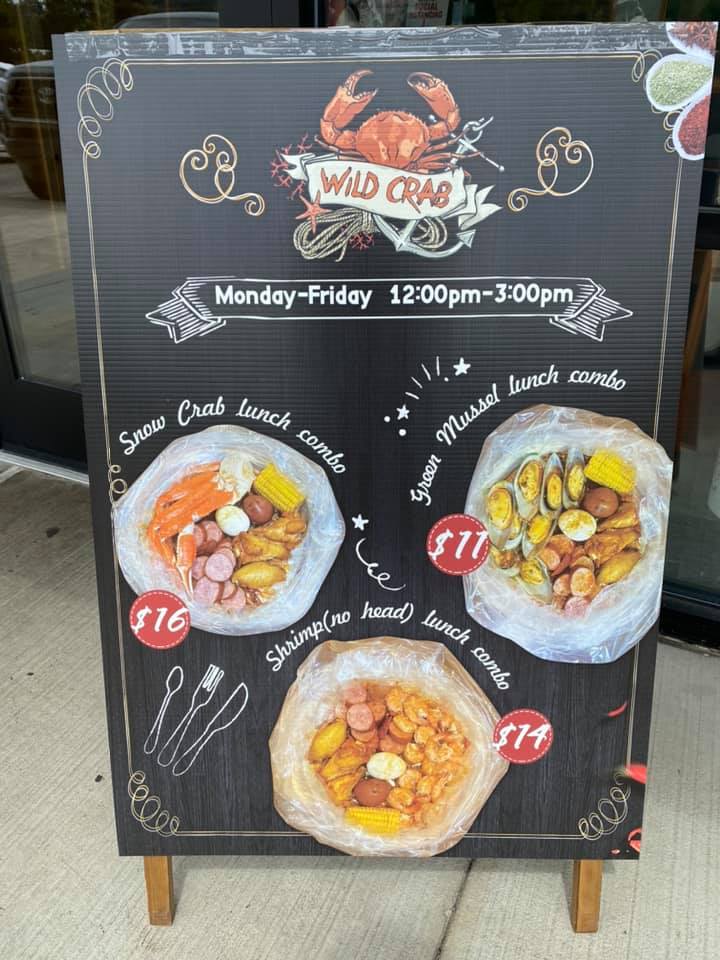 SOCIAL
DISTANCING
WILD CRAB
Monday-Friday 12:00pm-3:00pm
Snow Crab lunch combo
$16
Green Mussel lunch combo
$11
Shrimp(no head) lunch combo
$14